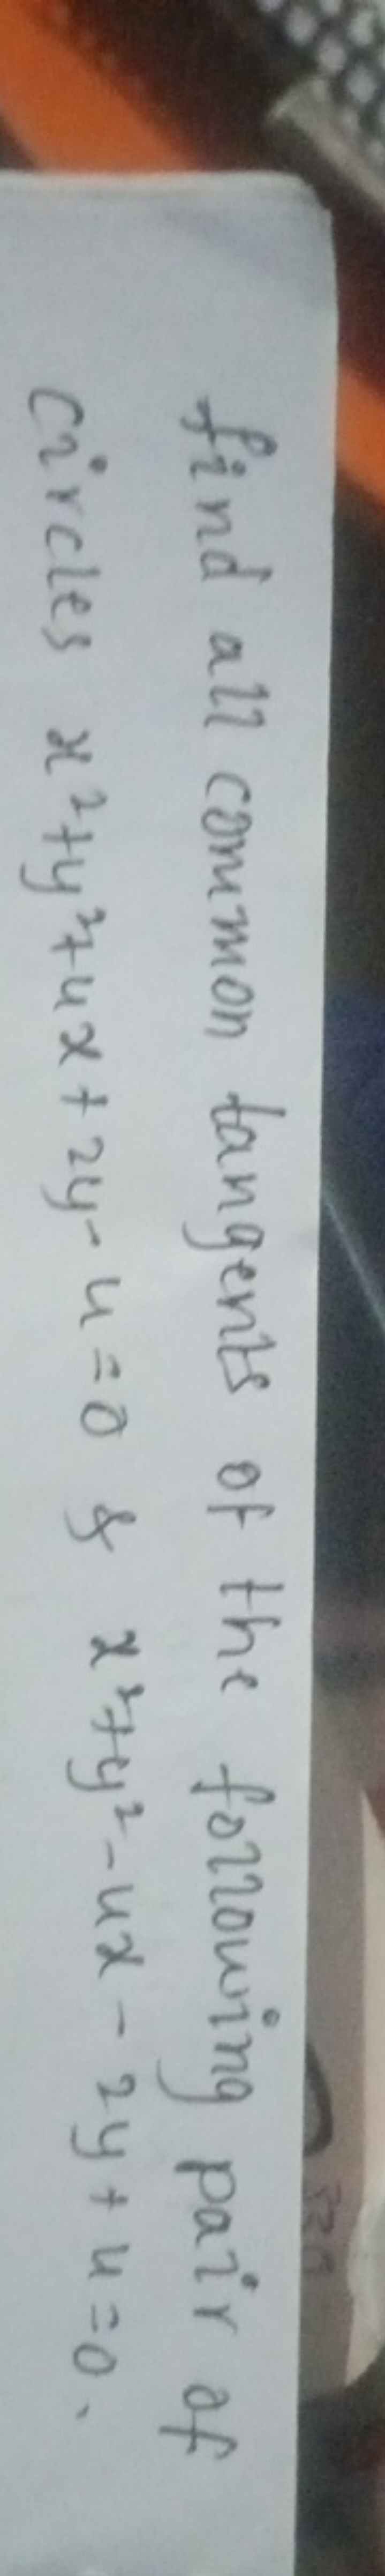 find all common tangents of the following pair of
circles x²+y²+4x+2y-4=0 & x²+y²-4x-2y+4=0.